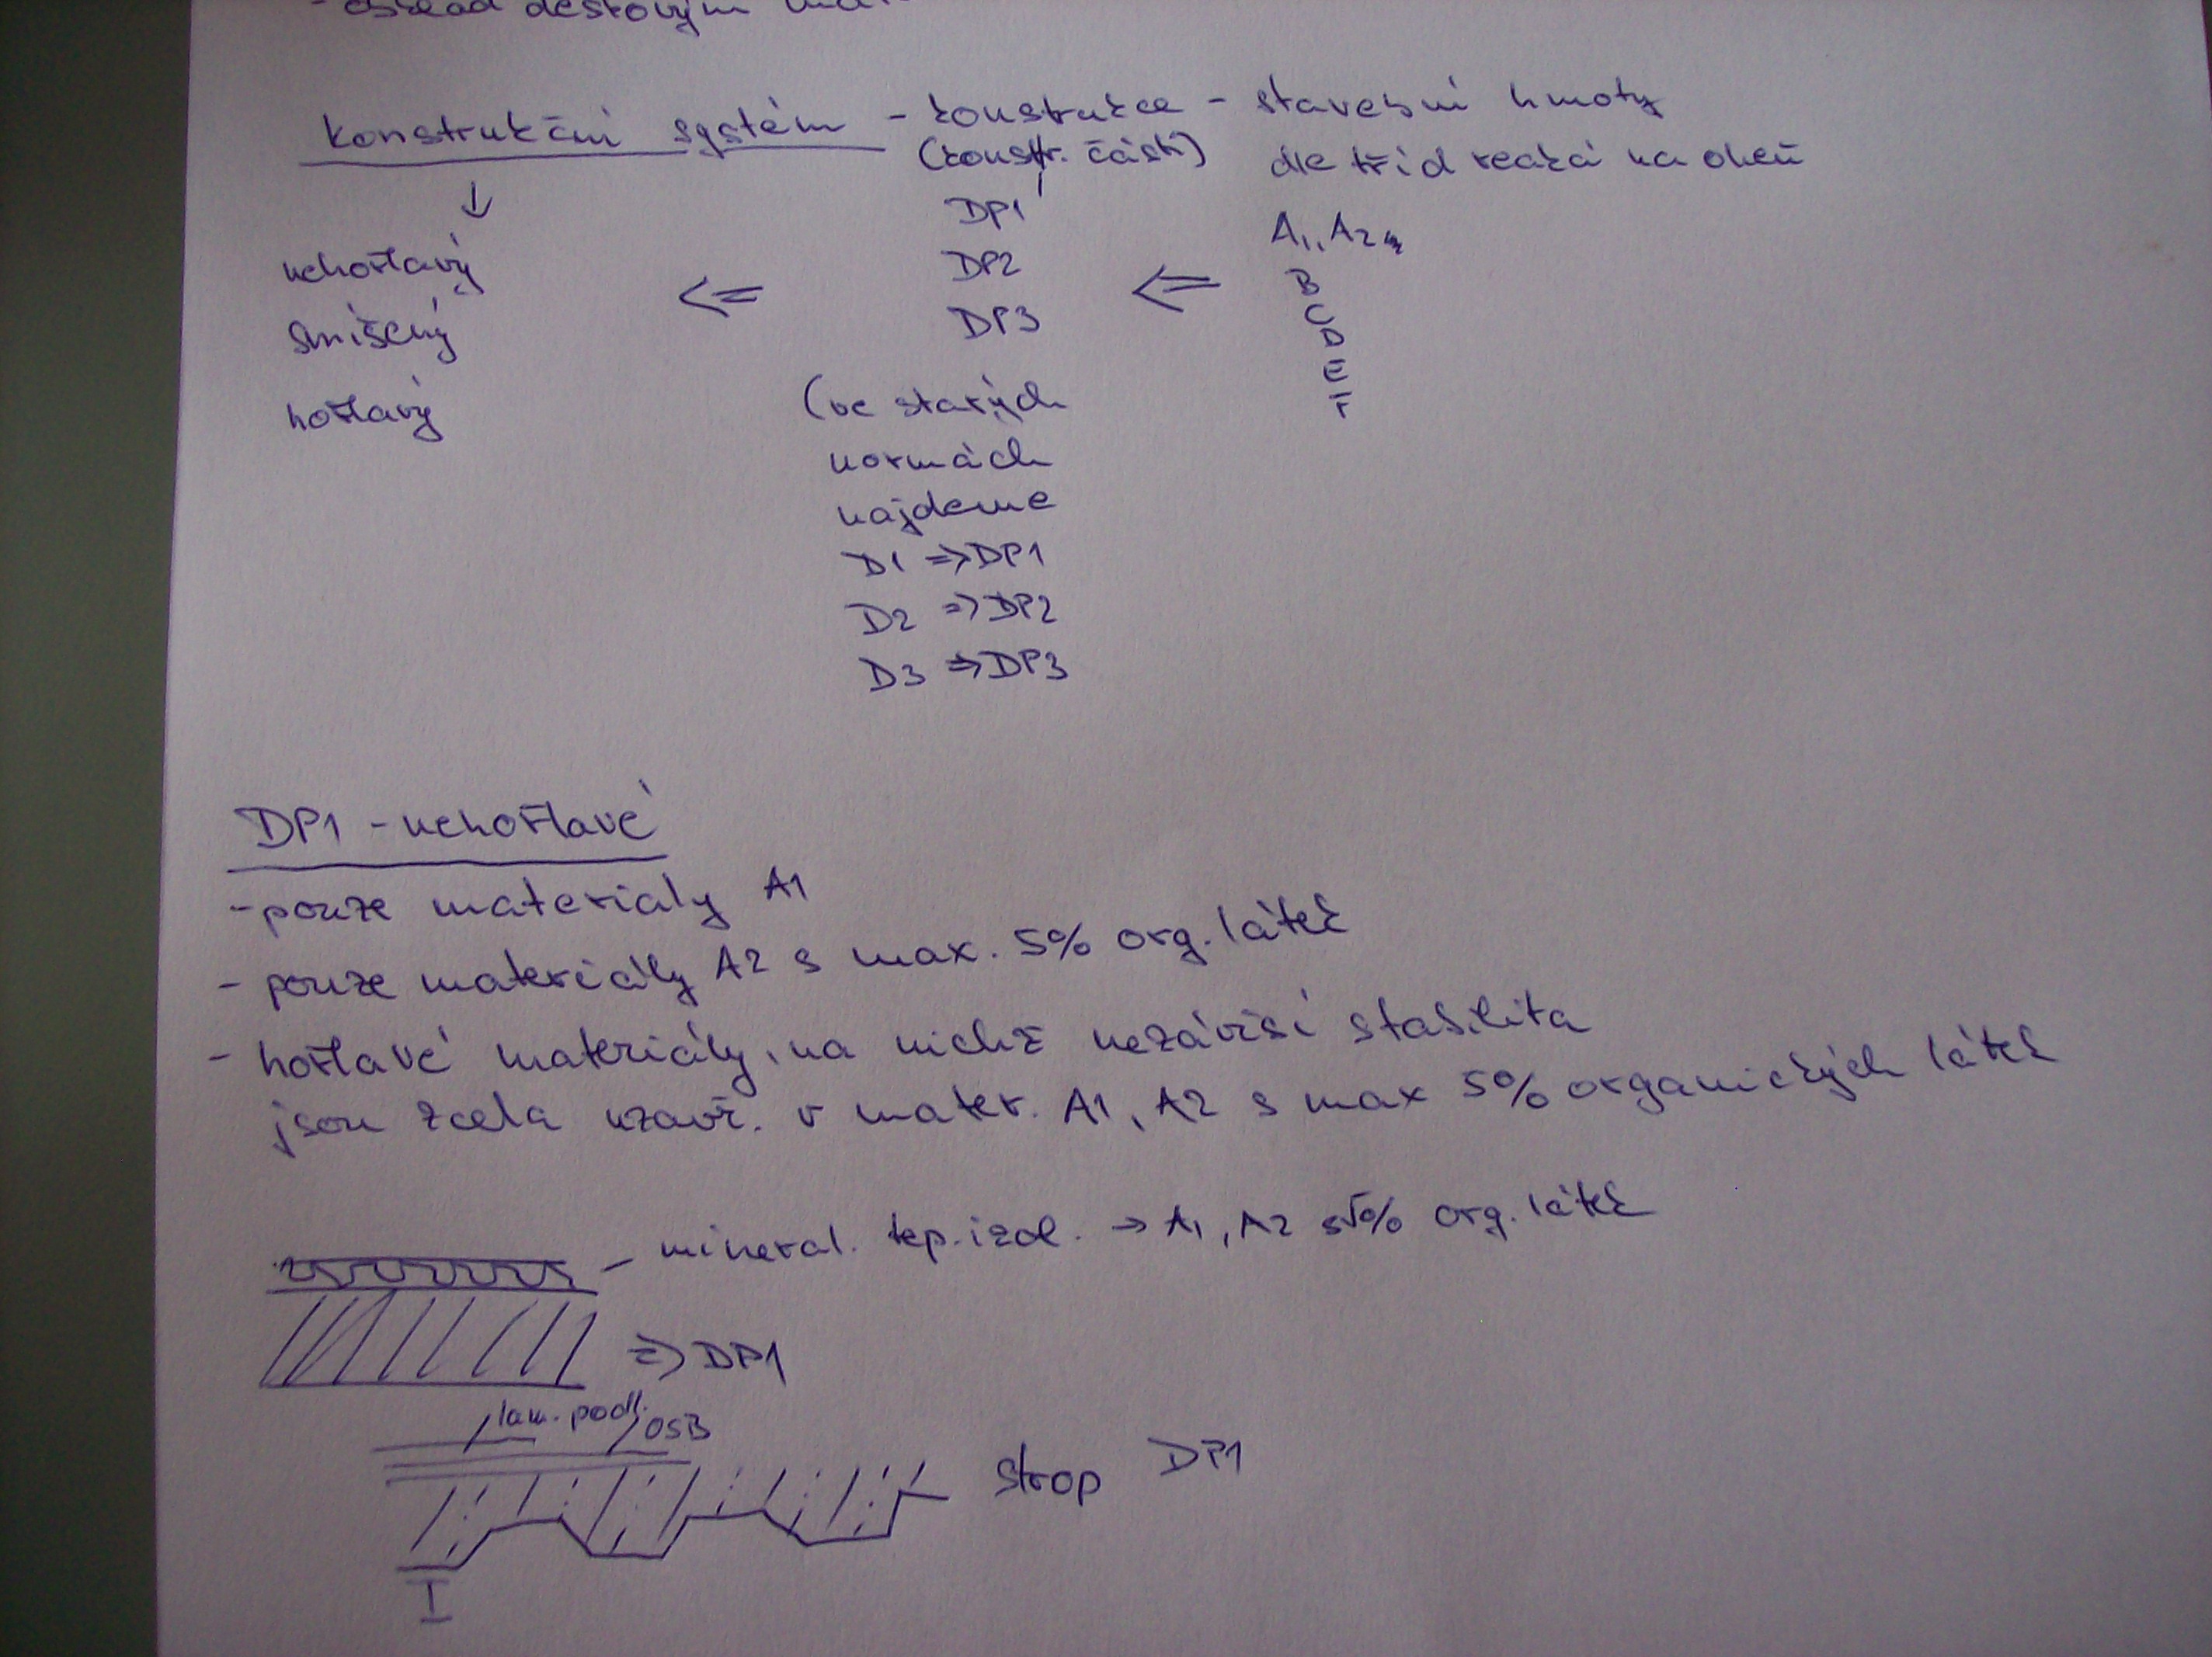 Konstrukční systém - konstrukce - stavební hmoty
(konstr. části) dle tříd reakcí na oheň
↓
DP1 A1, A2,
nehořlavý DP2 B
⇐ ⇐ C
smíšený DP3 D
E
hořlavý (ve starých F
normách
najdeme
D1 ⇒ DP1
D2 ⇒ DP2
D3 ⇒ DP3
DP1 - nehořlavé
- pouze materialy A1
- pouze materiály A2 s max. 5% org. látek
- hořlavé materiály, na nichž nezávisí stabilita
jsou zcela uzavř. v mater. A1, A2 s max 5% organických látek
- mineral. tep. izol. → A1, A2 s 5% org. látek
⇒ DP1
lam. podl. OSB
strop DP1
I